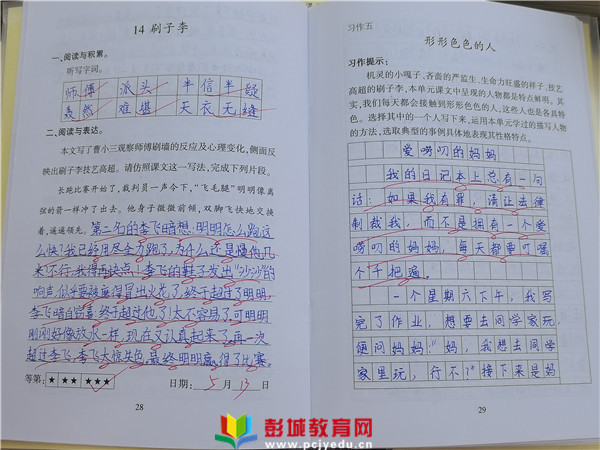 14 刷子李
一、阅读与积累。
听写字词。
师傅 派头 半信半疑
轰然 难堪 天衣无缝
二、阅读与表达。
本文写了曹小三观察师傅刷墙的反应及心理变化,侧面反
映出刷子李技艺高超。请仿照课文这一写法,完成下列片段。
长跑比赛开始了,裁判员一声令下,“飞毛腿”明明像离
弦的箭一样冲了出去。他身子微微前倾,双脚飞快地交换
着,遥遥领先。第二名的李飞暗想:明明怎么跑这
么快?我已经用尽全力跑了,为什么还是慢他几
米?不行,我得再快点!李飞的鞋子发出“沙沙”的
响声,似乎要被磨得冒出火花了,终于超过了明明,
李飞暗自窃喜:终于超过他了!太不容易了,可明明
刚刚好像放水一样,现在又认真起来了,再一次
超过李飞,李飞大惊失色,最终明明赢得了比赛。
等第:★★★ ★★★ 日期:5月13日
28
习作五
形形色色的人
习作提示:
机灵的小嘎子、吝啬的严监生、生命力旺盛的祥子、技艺
高超的刷子李,本单元课文中呈现的人物都是特点鲜明。其
实,我们每天都会接触到形形色色的人,这些人也是各具特
色。选择其中的一个人写下来,运用本单元学过的描写人物
的方法,选取典型的事例具体地表现其性格特点。
爱唠叨的妈妈
我的日记本上总有一句
话:如果我有罪,请让法律
制裁我,而不是拥有一个爱
唠叨的妈妈,每天都要叮嘱
个千把遍。
一个星期六下午,我写
完了作业,想要去同学家玩,
便问妈妈:“妈,我想去同学
家里玩,行不?”接下来是妈
29
彭城教育网
www.pcjyedu.cn